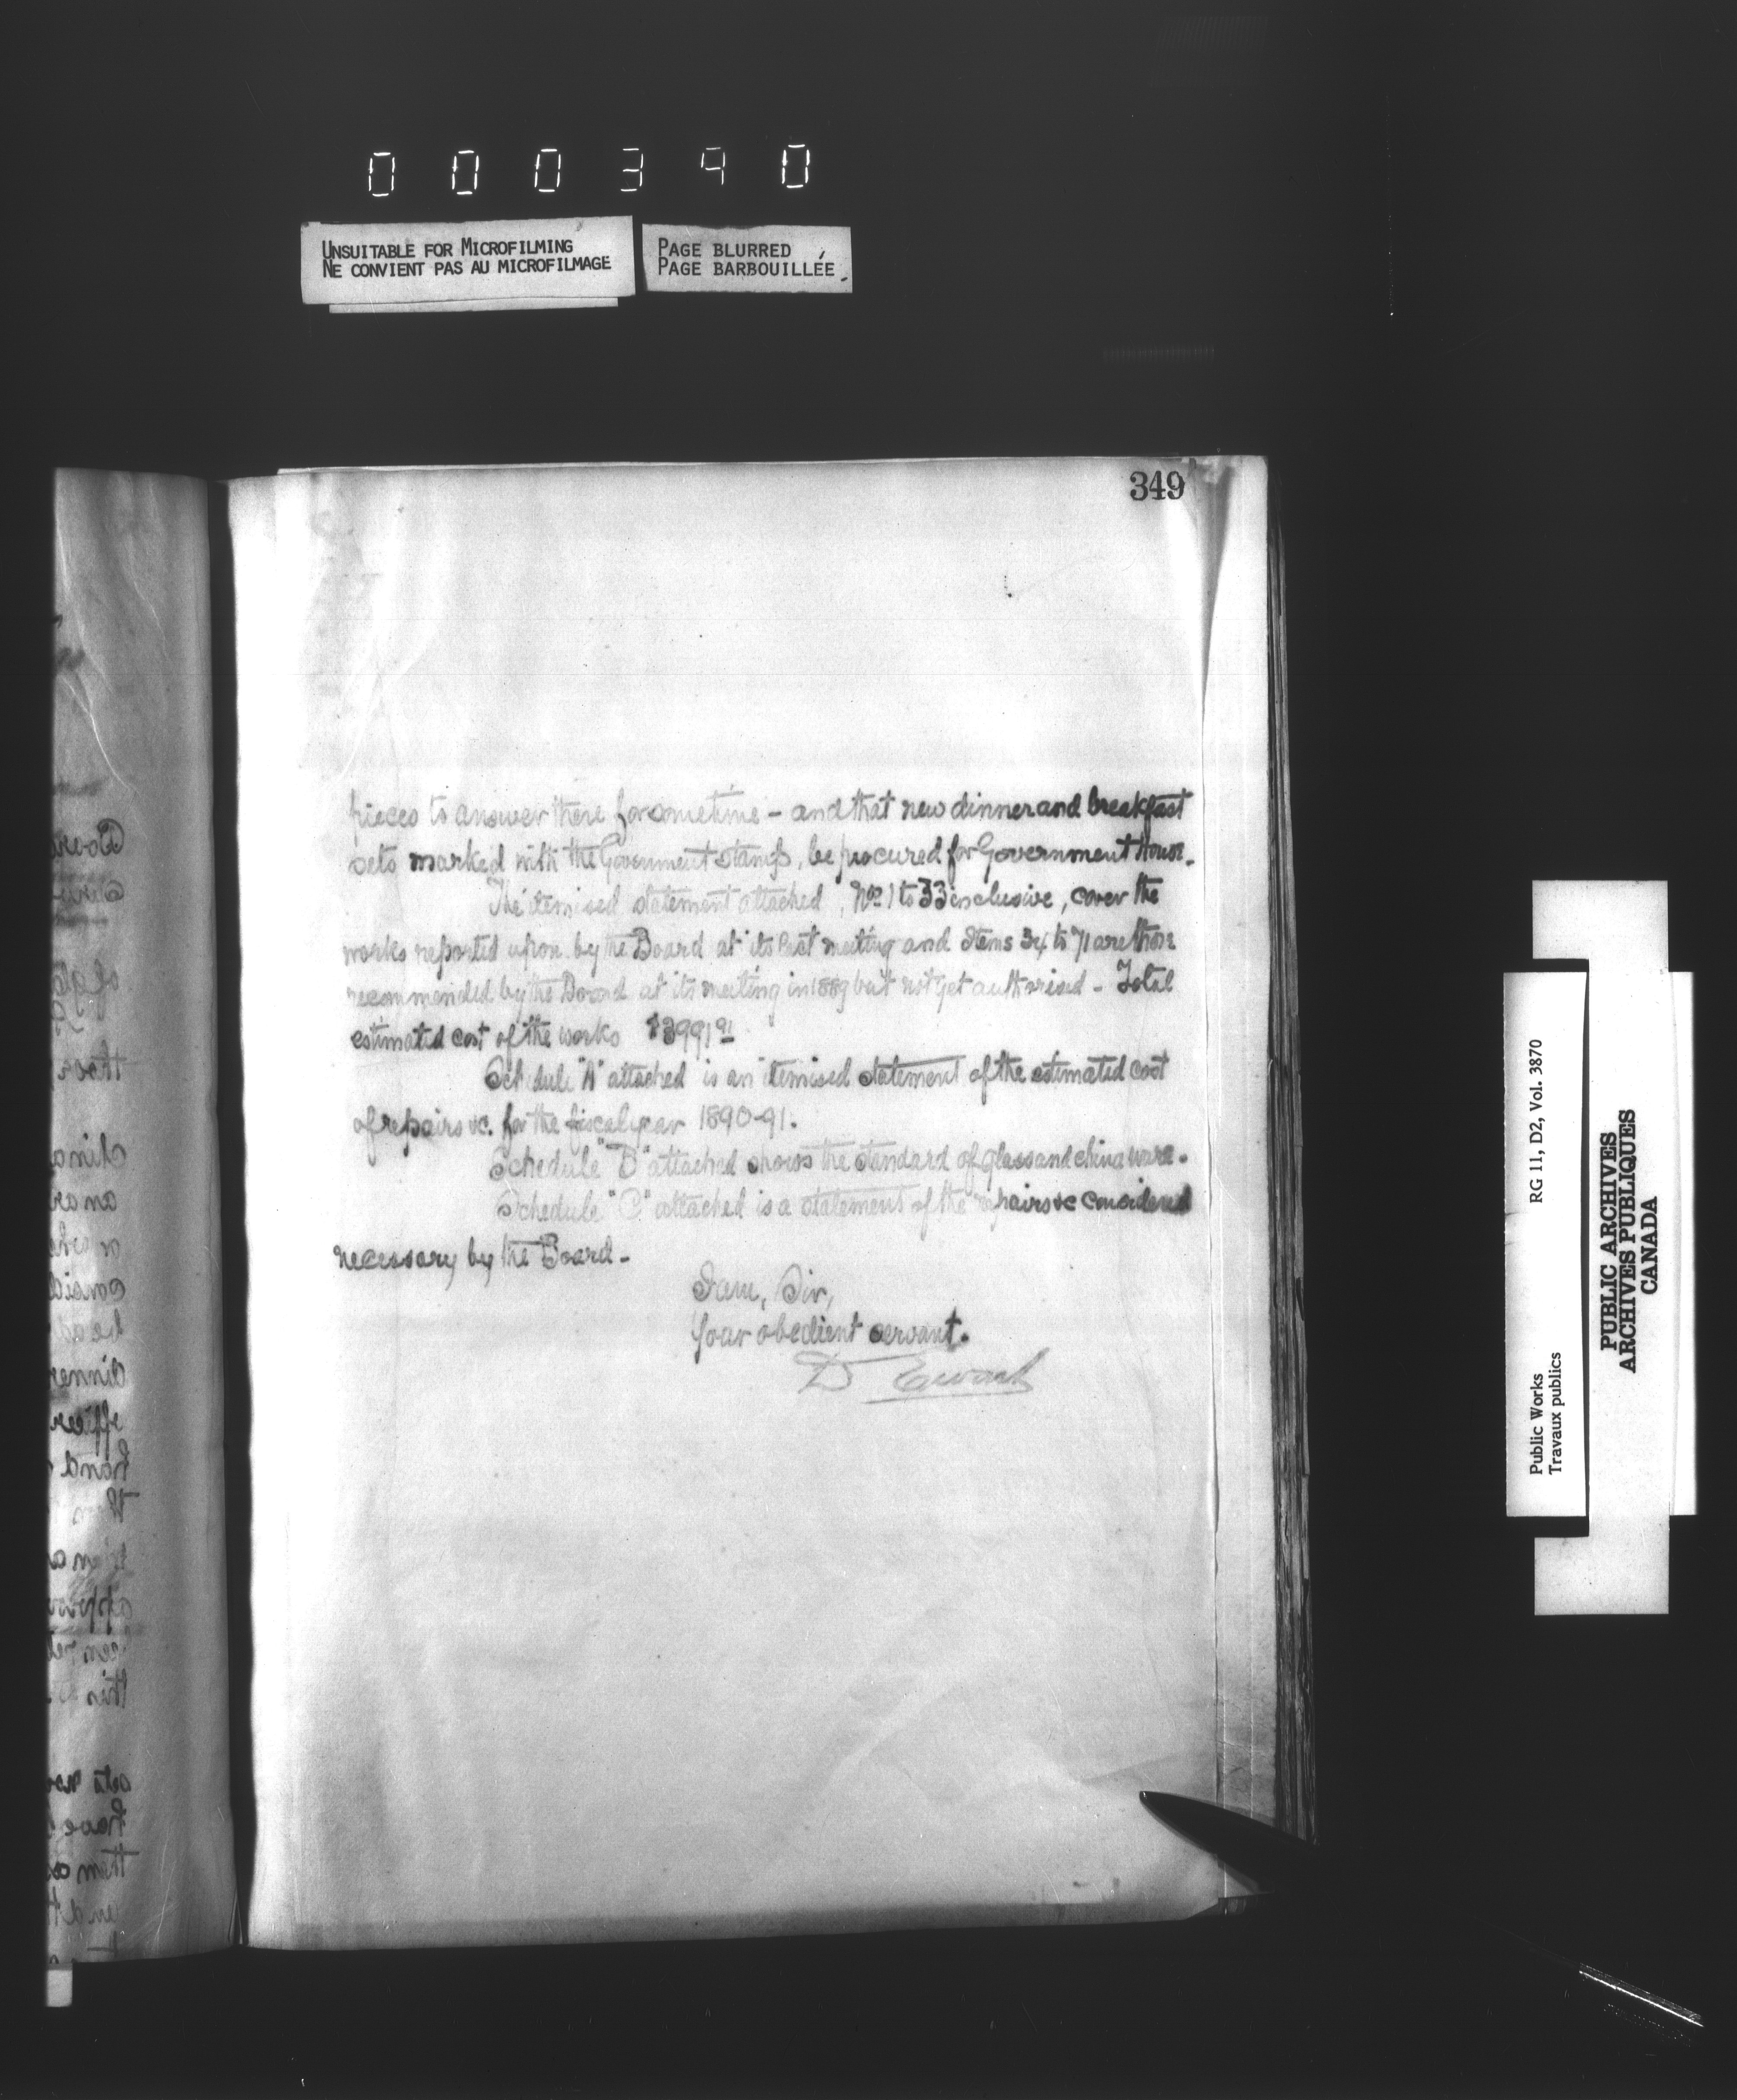 000390
UNSUITABLE FOR MICROFILMING
NE CONVIENT PAS AU MICROFILMAGE
PAGE BLURRED
PAGE BARBOUILLÉE
349
pieces to answer there for sometime - and that new dinner and breakfast
sets marked with the Government stamp, be procured for Government House.
The itemised statement attached, Nos 1 to 33 inclusive, cover the
works reported upon by the Board at its last meeting and Items 34 to 71 are those
recommended by the Board at its meeting in 1889 but not yet authorised - Total
estimated cost of the works $3991 91
Schedule "A" attached is an itemised statement of the estimated cost
of repairs &c. for the fiscal year 1890-91.
Schedule "B" attached shows the standard of glass and china ware.
Schedule "C" attached is a statement of the repairs &c considered
necessary by the Board -
I am, Sir,
Your obedient servant.
D Ewart
Public Works
Travaux publics
RG 11, D2, Vol. 3870
PUBLIC ARCHIVES
ARCHIVES PUBLIQUES
CANADA